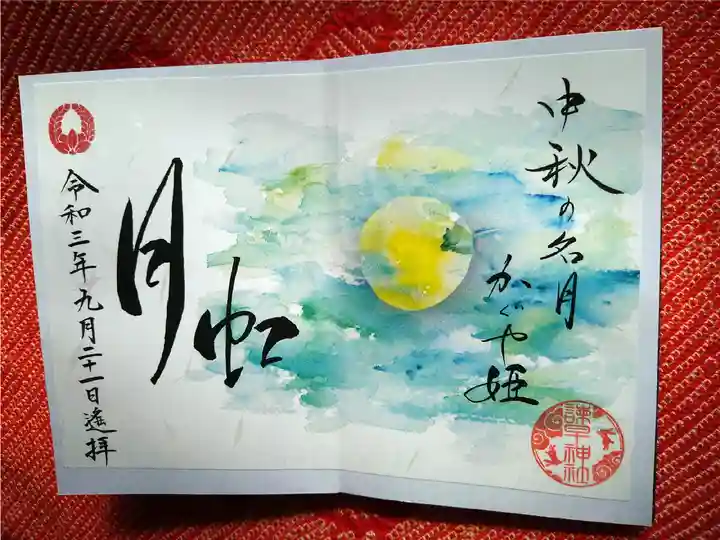 中秋の名月
かぐや姫
月虹
令和三年九月二十一日遙拝
諫早神社